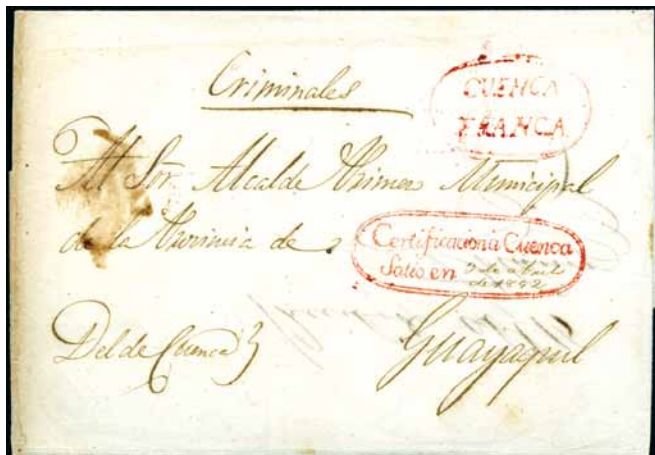 Criminales
CUENCA
FRANCA
Al Sor. Alcalde Primero Municipal
de la Provincia de
Certificacion á Cuenca
Salio en 9 de abril
de 1842
Del de Cuenca
Guayaquil